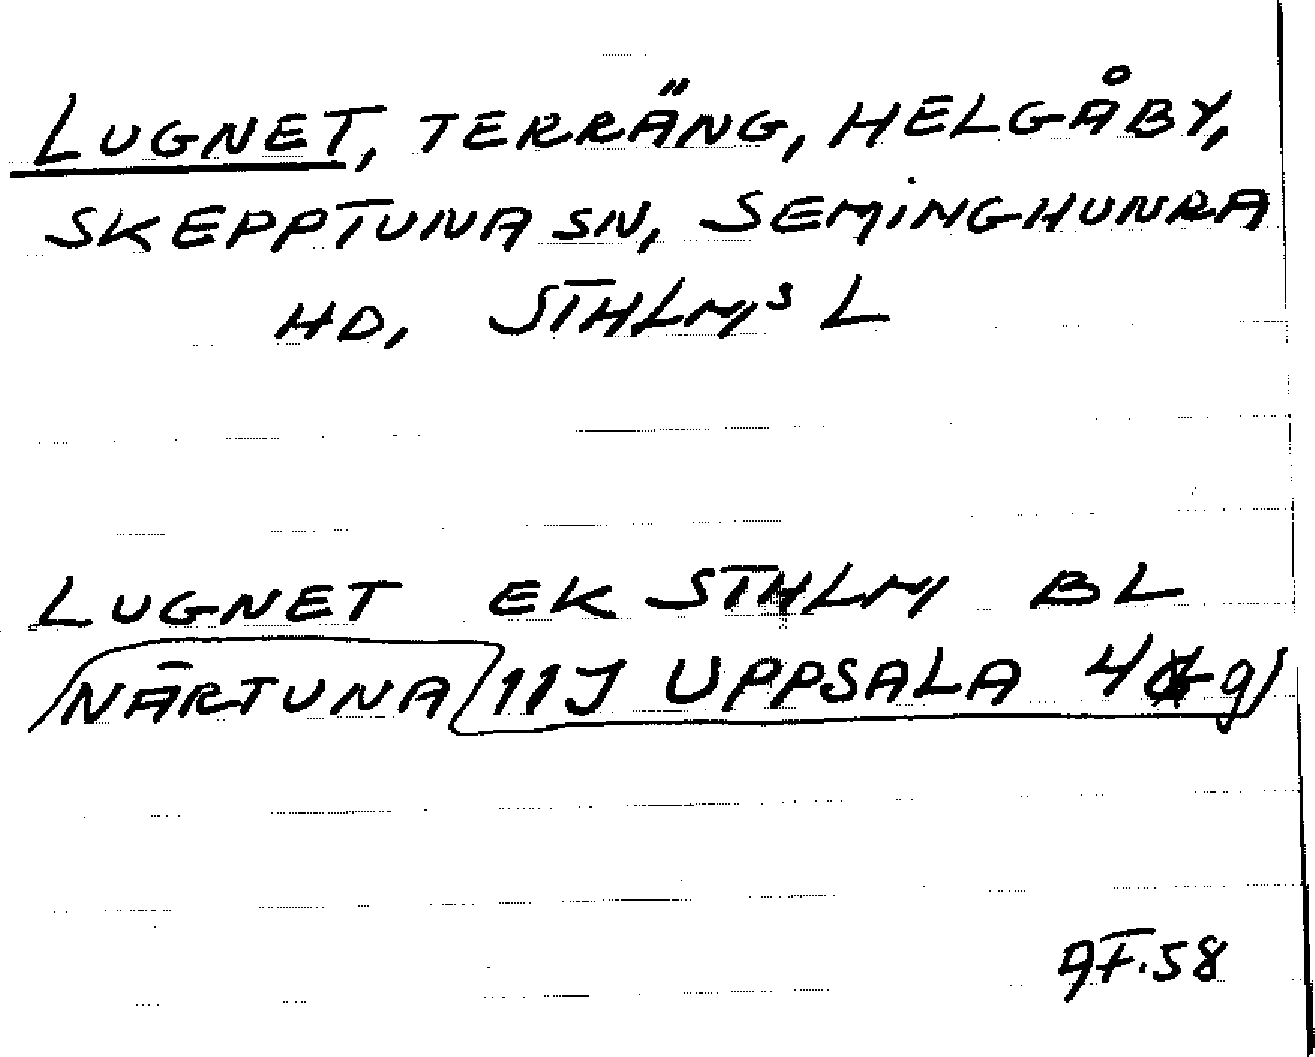 LUGNET, TERRÄNG, HELGÅBY,
SKEPPTUNA SN, SEMINGHUNRA
HD, STHLMS L
LUGNET EK STHLM BL
NÄRTUNA 11J UPPSALA 4 g
AF.58